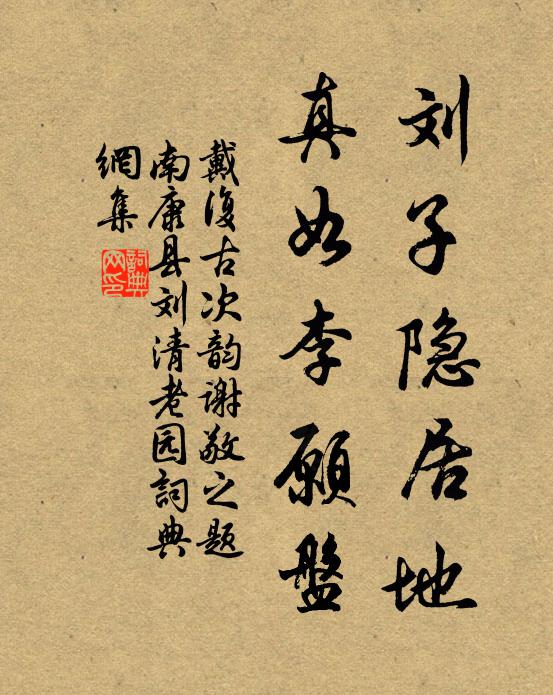 刘子隐居地
真如李愿盤
戴復古次韵谢敬之题
南康县刘清老园詞典
網集
詞典網印